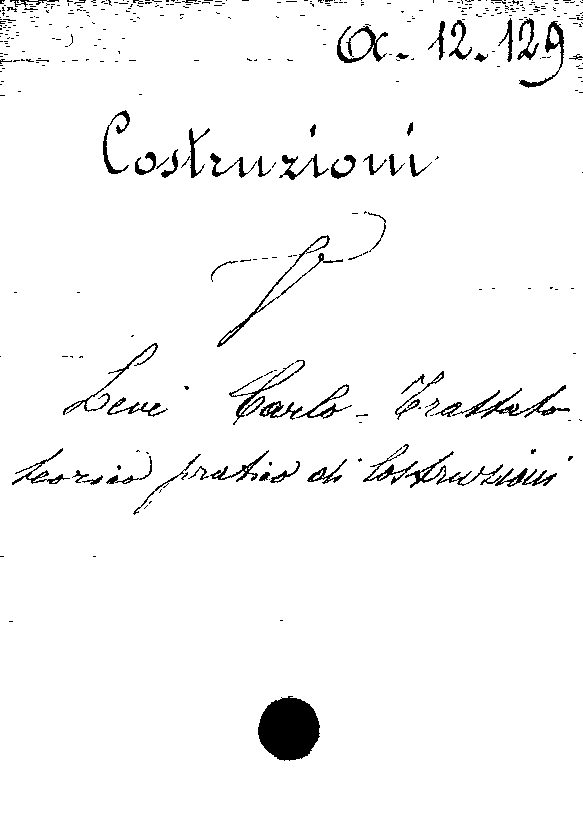 α. 12. 129
Costruzioni
Levi Carlo - Trattato
teorico pratico di Costruzioni